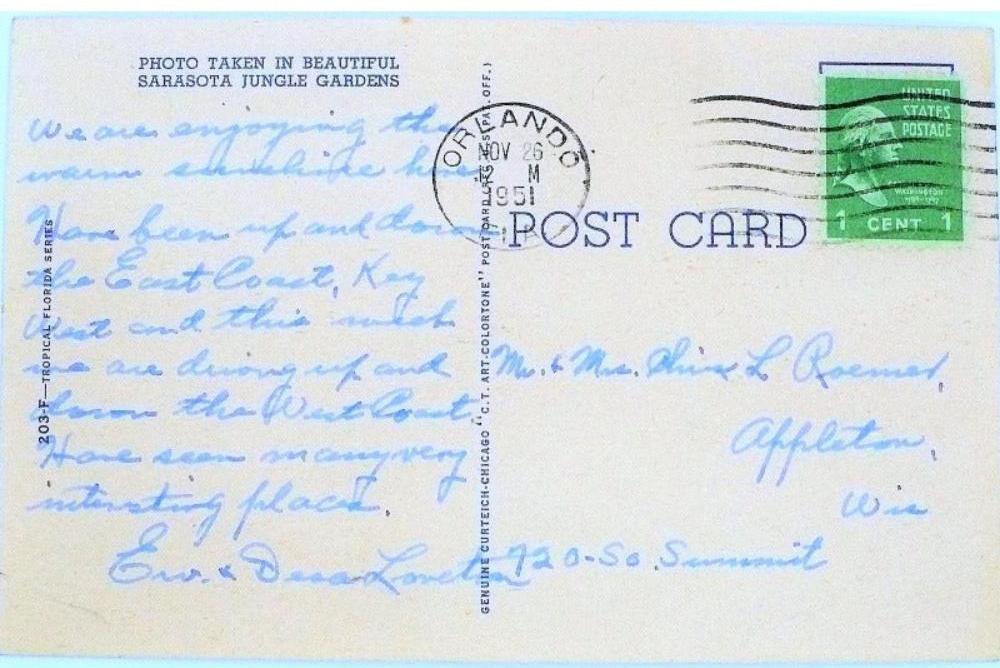 PHOTO TAKEN IN BEAUTIFUL
SARASOTA JUNGLE GARDENS
We are enjoying the
warm sunshine here
Have been up and down
the East Coast, Key
West and this week
we are driving up and
down the West Coast.
Have seen many very
interesting places.
Erv. &
203-F—TROPICAL FLORIDA SERIES
GENUINE CURTEICH-CHICAGO "C.T. ART-COLORTONE" POST CARD (REG. U.S. PAT. OFF.)
ORLANDO
NOV 26
M
1951
POST CARD
UNITED
STATES
POSTAGE
WASHINGTON
1 CENT 1
Mr. & Mrs. L Roemer,
Appleton,
Wis
720-So. Summit